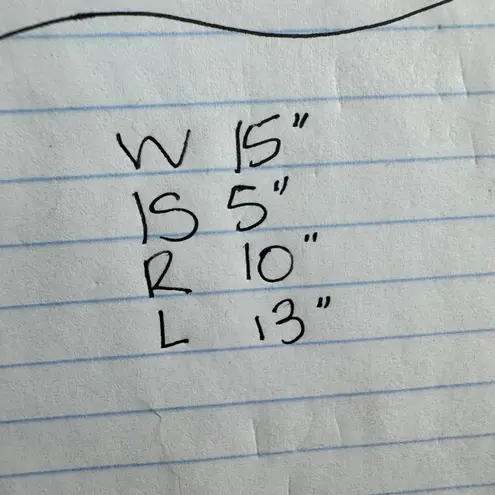 W 15"
IS 5"
R 10"
L 13"